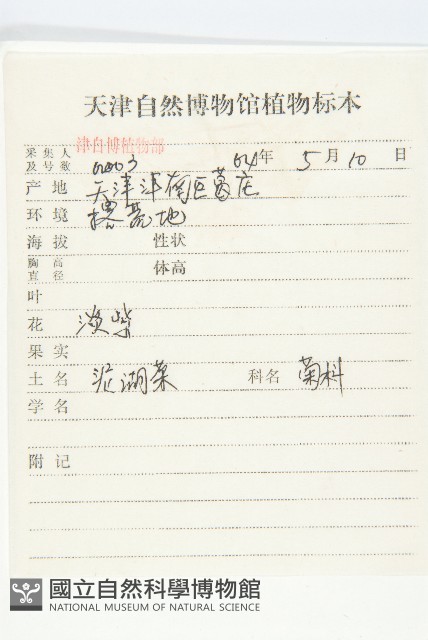 天津自然博物馆植物标本
采集人 津自博植物部
及号数 0003 64年 5月10日
产地 天津津南区葛庄
环境 撂荒地
海拔 性状
胸高
直径 体高
叶
花 淡紫
果实
土名 泥湖菜 科名 菊科
学名
附记
國立自然科學博物館
NATIONAL MUSEUM OF NATURAL SCIENCE